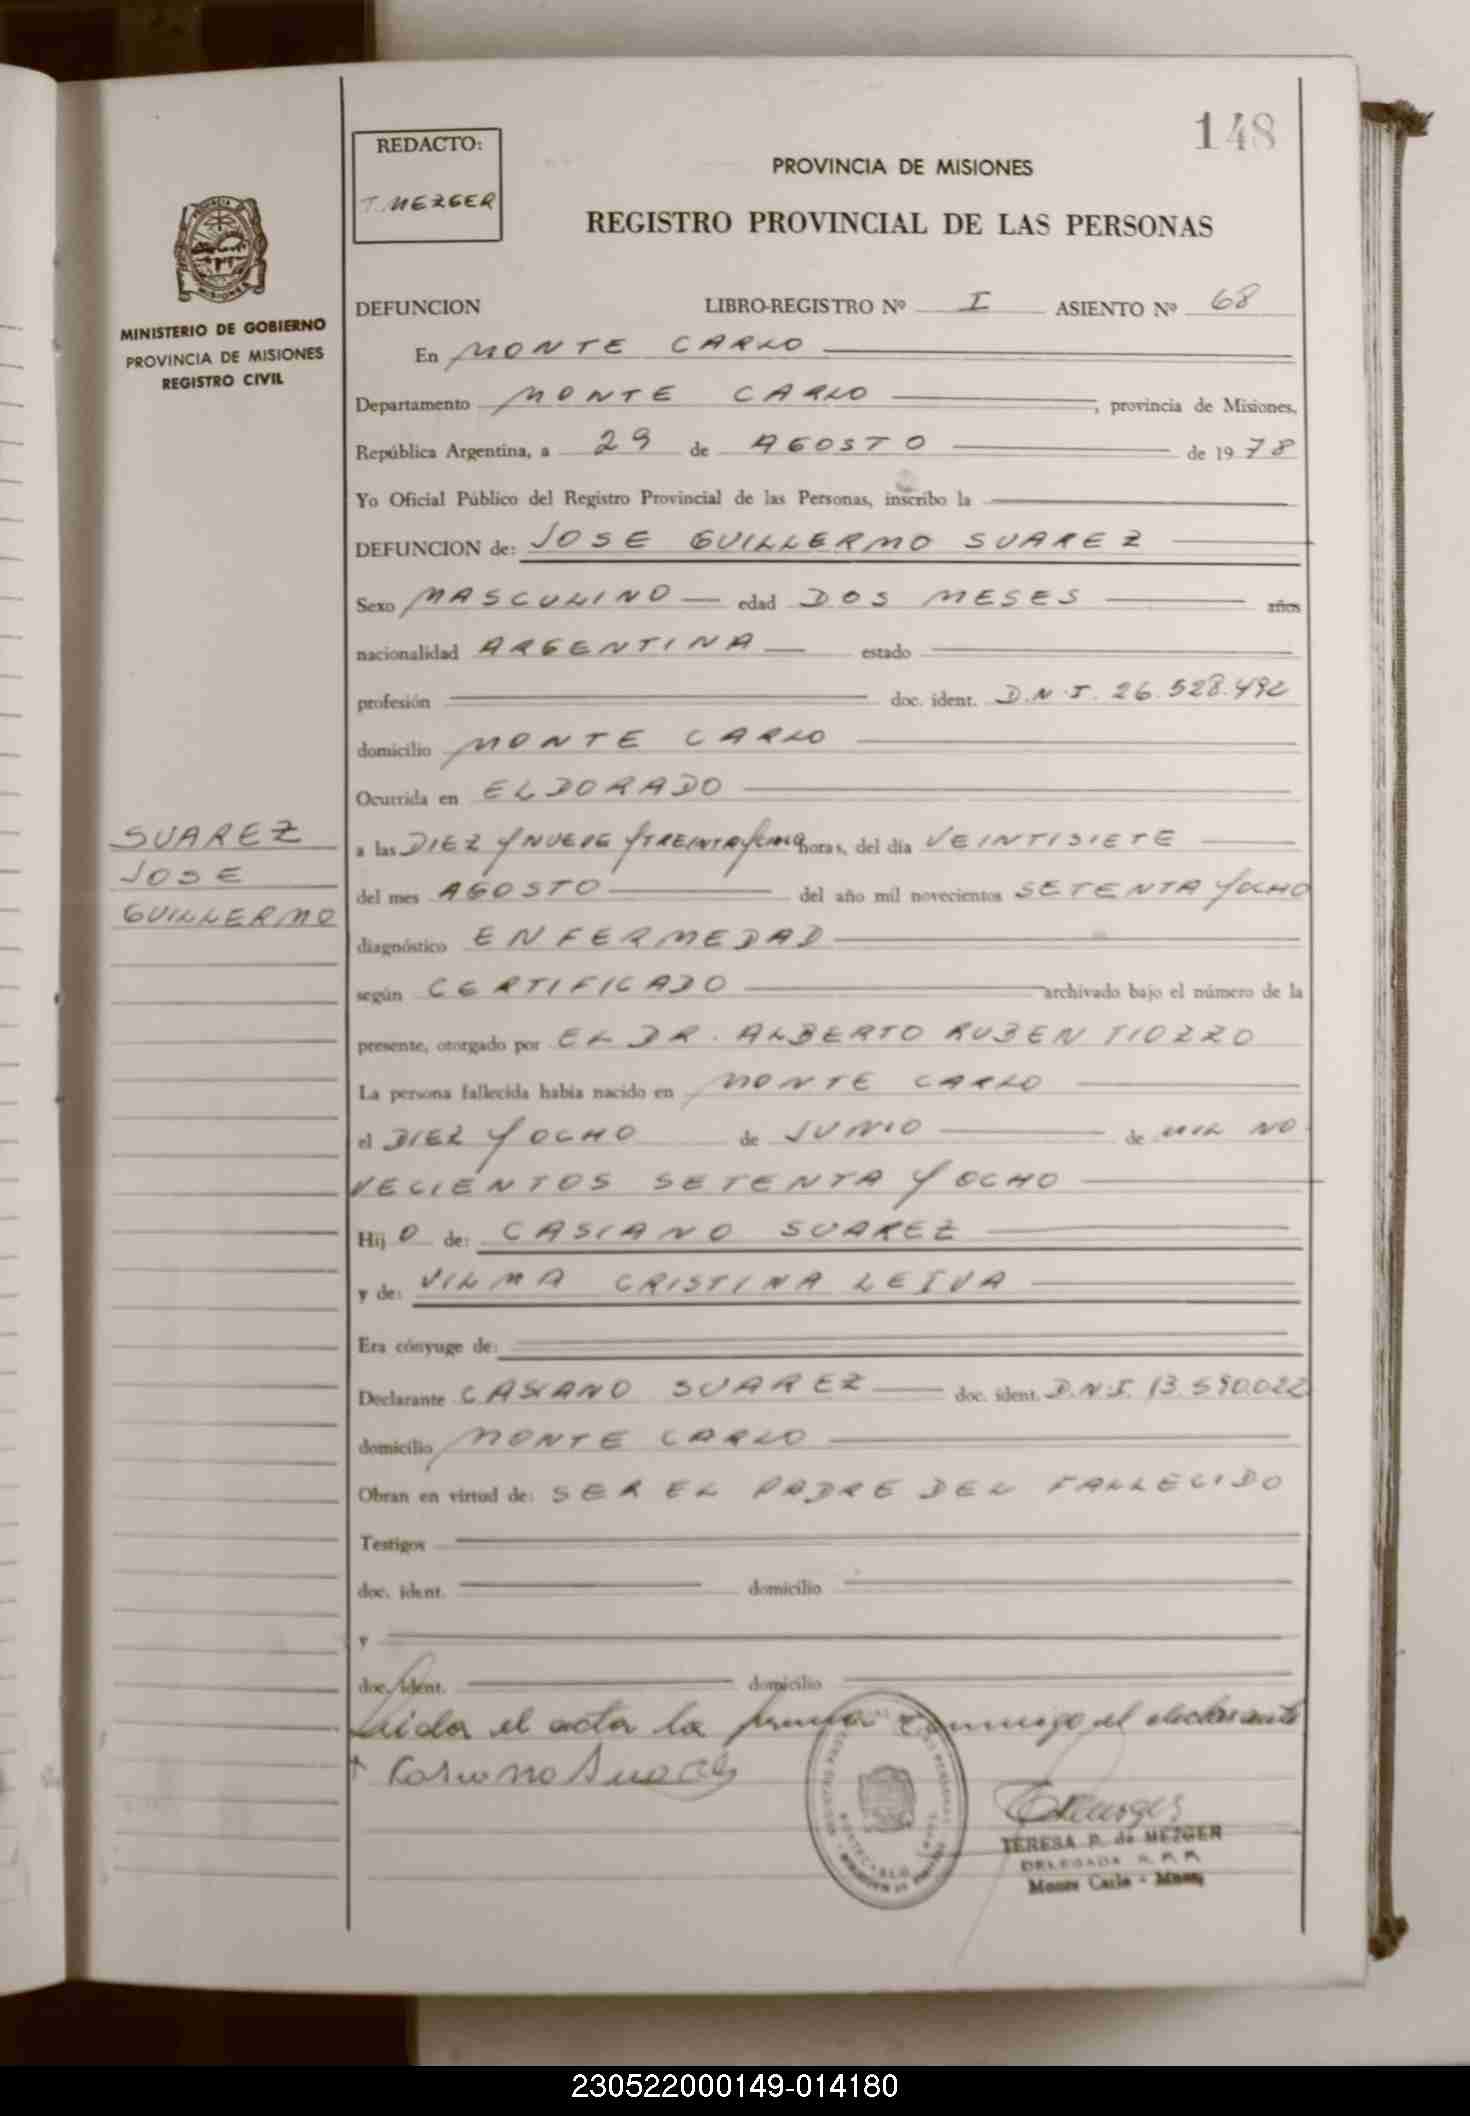 148
REDACTO:
T. MEZGER
PROVINCIA DE MISIONES
REGISTRO PROVINCIAL DE LAS PERSONAS
MINISTERIO DE GOBIERNO
PROVINCIA DE MISIONES
REGISTRO CIVIL
DEFUNCION LIBRO-REGISTRO Nº I ASIENTO Nº 68
En MONTE CARLO
Departamento MONTE CARLO, provincia de Misiones,
República Argentina, a 29 de AGOSTO de 1978
Yo Oficial Público del Registro Provincial de las Personas, inscribo la
DEFUNCION de: JOSE GUILLERMO SUAREZ
Sexo MASCULINO edad DOS MESES años
nacionalidad ARGENTINA estado
profesión doc. ident. D.N.I. 26.528.492
domicilio MONTE CARLO
Ocurrida en ELDORADO
SUAREZ
JOSE
GUILLERMO
a las DIEZ Y NUEVE Y TREINTA Y CINCO horas, del día VEINTISIETE
del mes AGOSTO del año mil novecientos SETENTA Y OCHO
diagnóstico ENFERMEDAD
según CERTIFICADO archivado bajo el número de la
presente, otorgado por EL DR. ALBERTO RUBEN TIOZZO
La persona fallecida había nacido en MONTE CARLO
el DIEZ Y OCHO de JUNIO de MIL NO
VECIENTOS SETENTA Y OCHO
Hij O de: CASIANO SUAREZ
y de: VILMA CRISTINA LEIVA
Era cónyuge de:
Declarante CASIANO SUAREZ doc. ident. D.N.I. 13.590.022
domicilio MONTE CARLO
Obran en virtud de: SER EL PADRE DEL FALLECIDO
Testigos
doc. ident. domicilio
y
doc. ident. domicilio
Leida el acta la firma conmigo el declarante
Casiano Suarez
TERESA P. de MEZGER
DELEGADA R. P. P.
Monte Carlo - Mnes
230522000149-014180